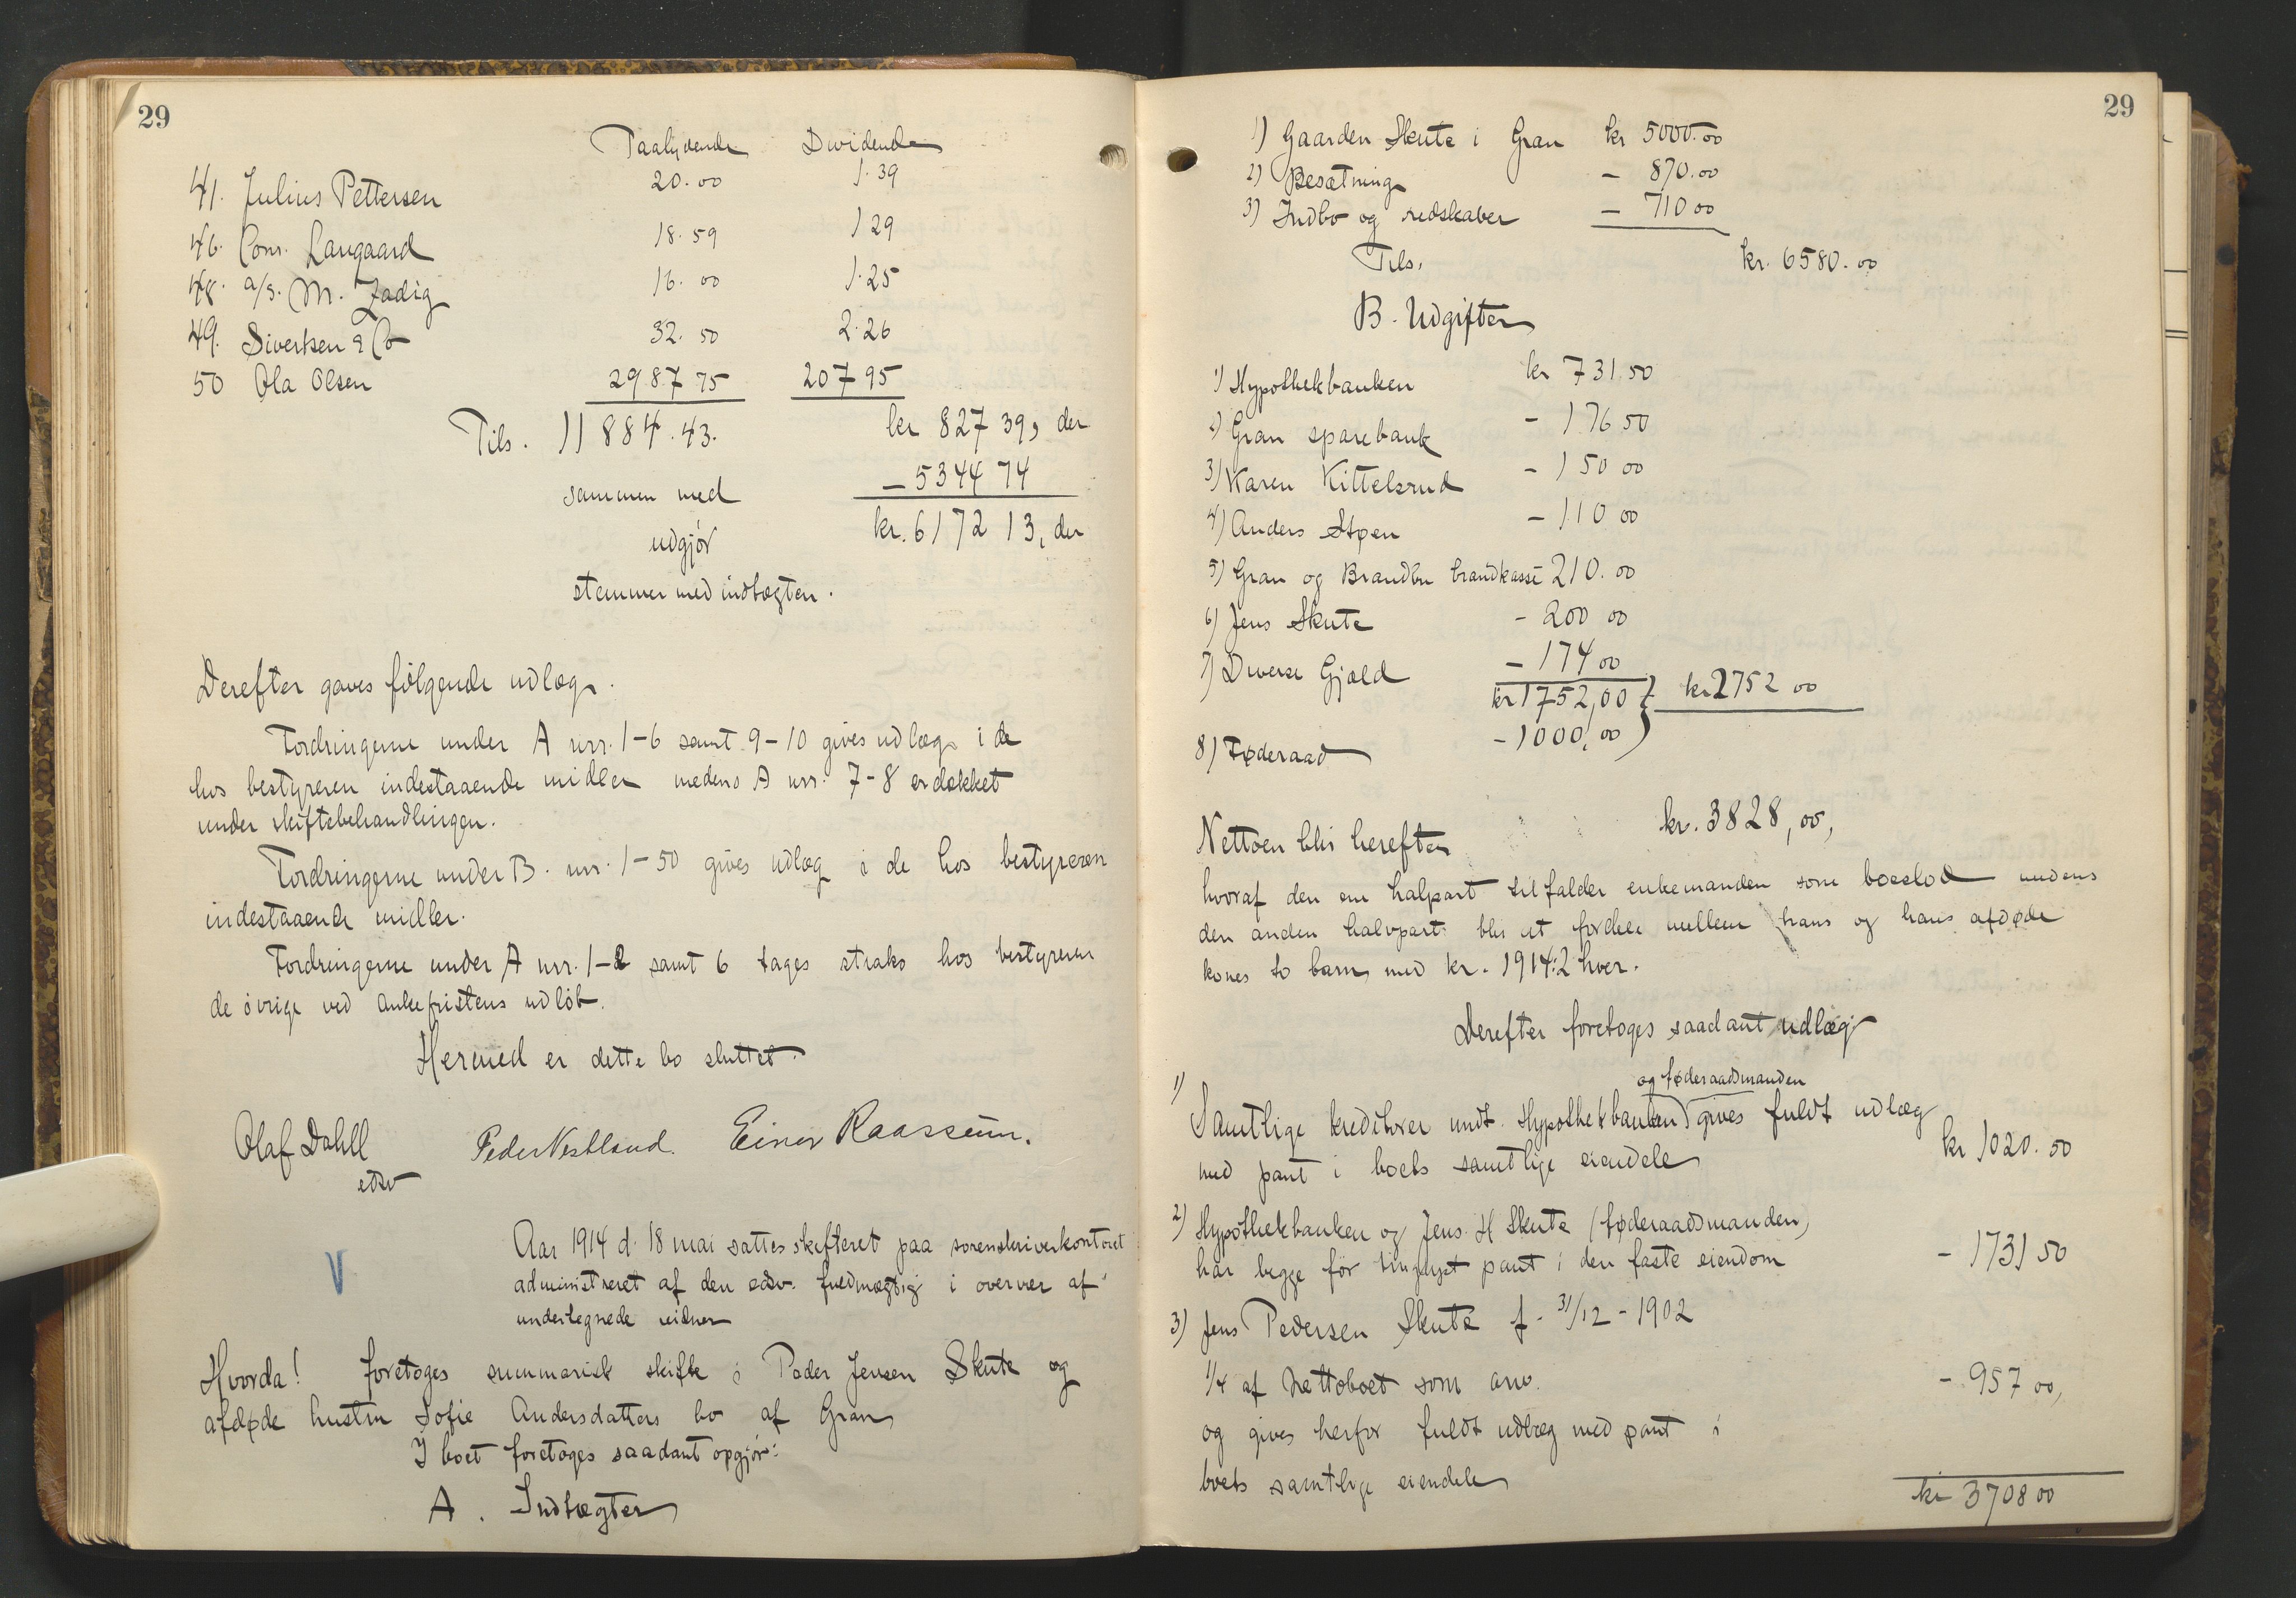 29
Paalydende Dividende
41. Julius Pettersen 20.00 1.39
46. Cons. Langaard 18.59 1 29
48. a/s. M. Zadig 16.00 1.25
49. Sivertsen & Co 32.50 2.26
50 Ola Olsen 2987 75 207 95
Tils. 11884.43. kr 827 39, der
sammen med - 5344 74
udgjør kr. 6172 13, der
stemmer med indtægten.
Derefter gaves følgende udlæg.
Fordringerne under A nrr. 1-6 samt 9-10 gives udlæg i de
hos bestyreren indestaaende midler medens A nrr. 7-8 er dækket
under skiftebehandlingen.
Fordringerne under B. nrr. 1-50 gives udlæg i de hos bestyreren
indestaaende midler.
Fordringerne under A nrr. 1-2 samt 6 tages straks hos bestyreren
de øvrige ved ankefristens udløb.
Hermed er dette bo sluttet.
Olaf Dahll Peder Vestland. Einar Raassum.
edsv
V
Aar 1914 d. 18 mai sattes skifteret paa sorenskriverkontoret
administreret af den edsv. fuldmægtig i overvær af
undertegnede vidner
Hvorda! foretoges summarisk skifte i Peder Jensen Skute og
afdøde hustru Sofie Andersdatters bo af Gran
I boet foretoges saadant opgjør:
A. Indtægter
29
1) Gaarden Skute i Gran kr 5000.00
2) Besætning - 870.00
3) Indbo og redskaber - 710 00
Tils. kr. 6580.00
B. Udgifter
1) Hypothekbanken kr 731.50
2) Gran sparebank - 176 50
3) Karen Kittelsrud - 150 00
4) Anders Støen - 110 00
5) Gran og Brandbu brandkasse 210.00
6) Jens Skute - 200 00
7) Diverse Gjæld - 174 00
kr 1752,00 } kr 2752 00
8) Føderaad - 1000,00
Nettoen blir herefter kr. 3828,00,
hvoraf den ene halpart tilfalder enkemanden som boeslod medens
den anden halvpart blir at fordele mellem hans og hans afdøde
kones to barn med kr. 1914:2 hver.
Derefter foretoges saadant udlæg
og føderaadsmanden
1) Samtlige kreditorer undt. Hypothekbanken gives fuldt udlæg
med pant i boets samtlige eiendele kr 1020.50
2) Hypothekbanken og Jens H Skute (føderaadsmanden)
har begge før tinglyst pant i den faste eiendom - 1731 50
3) Jens Pedersen Skute f. 31/12 - 1902
1/4 af Nettoboet som arv. - 957 00,
og gives herfor fuldt udlæg med pant i
boets samtlige eiendele
kr 3708 00